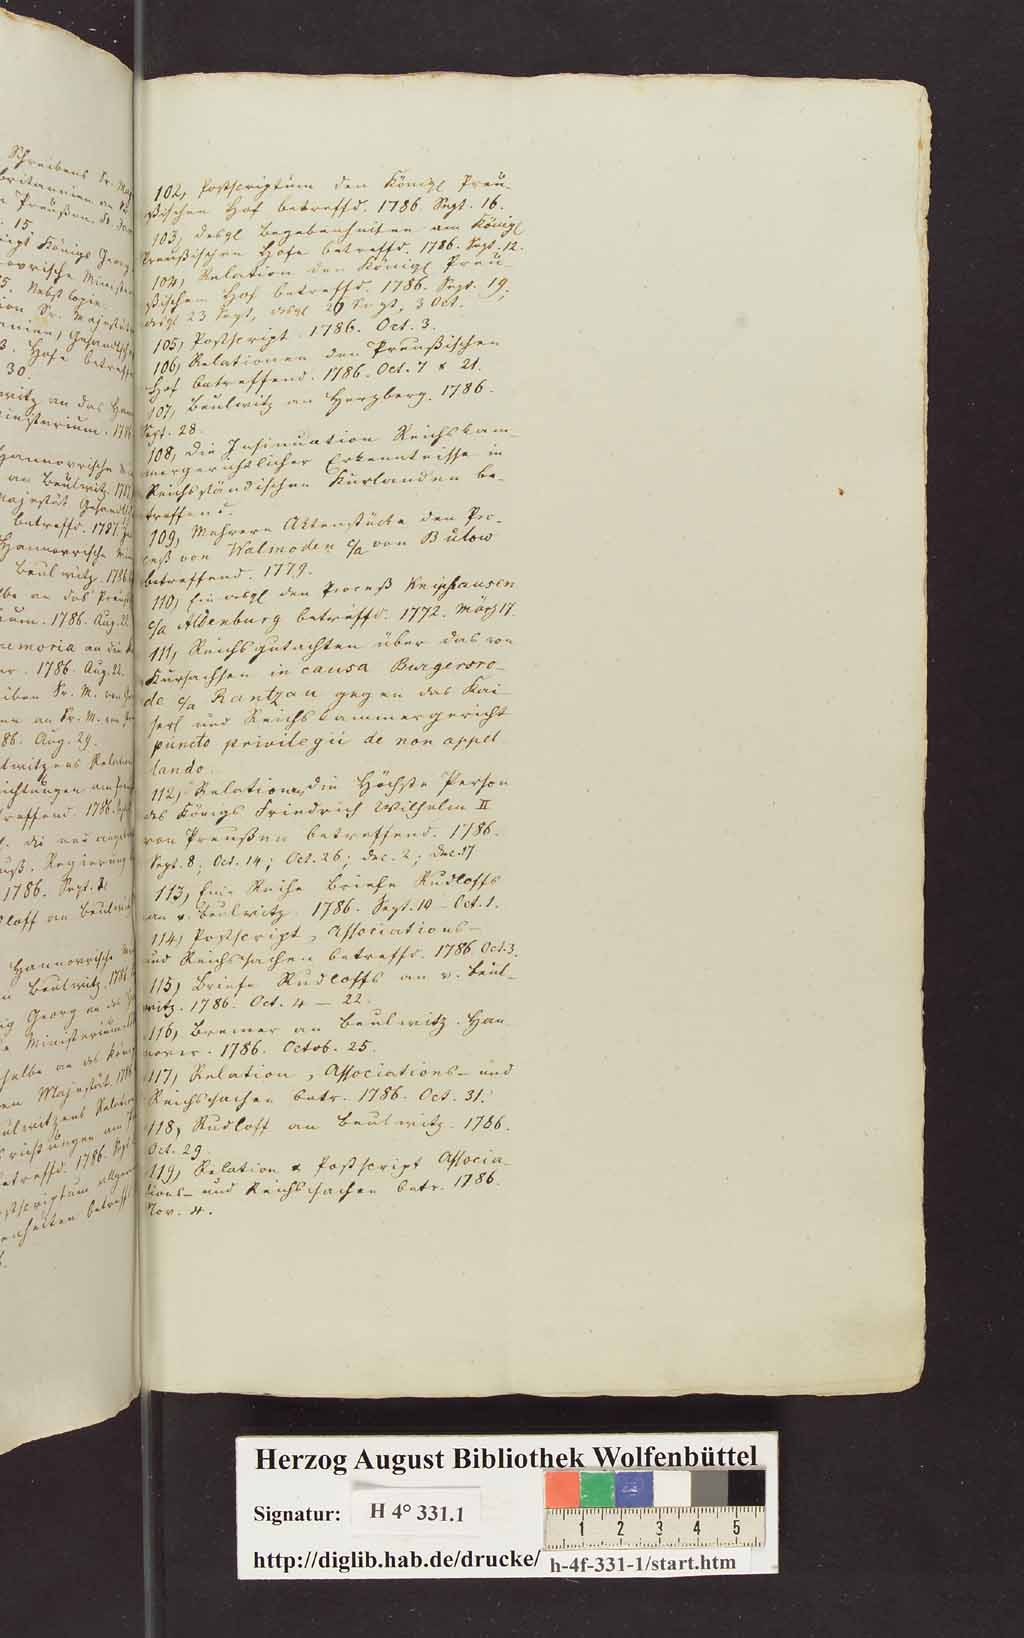 Schreibens Sr. Maj
britannien an
Preußen
15.
Königs Georg
Hannovrische Minister
5. Nebst Copie.
Sr. Majestät
Gesandtsch
3. Hofe betreff
30.
witz an das Han
ministerium. 178
Hannovrische
an Beulwitz. 178
Majestät Gesandt
betreffd. 1786.
Hannovrische
Beulwitz. 1786.
an das Preuß
1786. Aug. 22.
memoria an die
1786. Aug. 22.
Sr. M. von
an Sr. M. von
86. Aug. 29.
lwitzens Relation
treffend. 1786.
die neu
Preuß. Regierung
1786. Sept.
dloff an Beulwitz
Hannovrische
Beulwitz. 1786
Georg an das
Ministerium
selbe an des König
Majestät. 1786
eulwitzens Relation
betreffd. 1786. Sept
Postscriptum allgem
enheiten betreff
102, Postscriptum den Königl Preu-
ßischen Hof betreffd. 1786 Sept. 16.
103, desgl Begebenheiten am Königl
Preußischen Hofe betreffd. 1786. Sept. 12.
104, Relation den Königl Preu-
ßischen Hof betreffd. 1786. Sept. 19;
desgl 23 Sept, desgl 29 Sept, 3 Oct.
105, Postscript. 1786. Oct. 3.
106, Relationen den Preußischen
Hof betreffend. 1786. Oct. 7 & 21.
107, Beulwitz an Herzberg. 1786.
Sept. 28.
108, die Insinuation Reichskam-
mergerichtlicher Erkenntnisse in
Reichsständischen Kurlanden be-
treffend.
109, Mehrere Aktenstücke den Pro-
ceß von Walmoden c/a von Bulow
betreffend. 1779.
110, Ein desgl den Proceß Kniphausen
c/a Aldenburg betreffd. 1772. März 17.
111, Reichsgutachten über das von
Kursachsen in causa Burgersro-
de c/a Rantzau gegen das Kai-
serl und Reichskammergericht
puncto privilegii de non appel
lando.
112, Relationen, die Höchste Person
des Königs Friedrich Wilhelm II
von Preußen betreffend. 1786.
Sept. 8; Oct. 14; Oct. 26; Dec. 2; Dec. 17
113, Eine Reihe Briefe Rudloffs
an v. Beulwitz. 1786. Sept. 10 - Oct. 1.
114, Postscript, Associations-
und Reichssachen betreffd. 1786 Oct. 3.
115, Briefe Rudloffs an v. Beul-
witz. 1786. Oct. 4 - 22.
116, Bremer an Beulwitz. Han
nover. 1786. Octob. 25.
117, Relation, Associations- und
Reichssachen betr. 1786. Oct. 31.
118, Rudloff an Beulwitz. 1786.
Oct. 29.
119, Relation & Postscript Associa-
tions- und Reichssachen betr. 1786.
Nov. 4.
Herzog August Bibliothek Wolfenbüttel
Signatur: H 4° 331.1
1 2 3 4 5
http://diglib.hab.de/drucke/ h-4f-331-1/start.htm